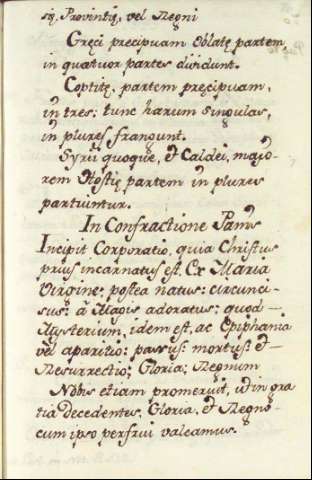 sis Provintię, vel Regni
Gręci precipuam oblatę partem,
in quatuor partes dividunt.
Coptitę, partem pręcipuam,
in tres: tunc harum singulas,
in plures frangunt.
Syrii quoque, et Caldei, majo-
rem Hostię partem in plures
partiuntur.
In Confractione Panis
Incipit Corporatio, quia Christus
prius incarnatus est, Ex Maria
Virgine: postea natus: circunci-
sus: a Magis adoratus: quod
Mysterium, idem est, ac Epiphania
vel aparitio: passus: mortus: et
Resurrectio; Gloria; Regnum
Nobis etiam promeruit, ut in gra
tia decedentes, Gloria, et Regno
cum ipso perfrui valeamus.